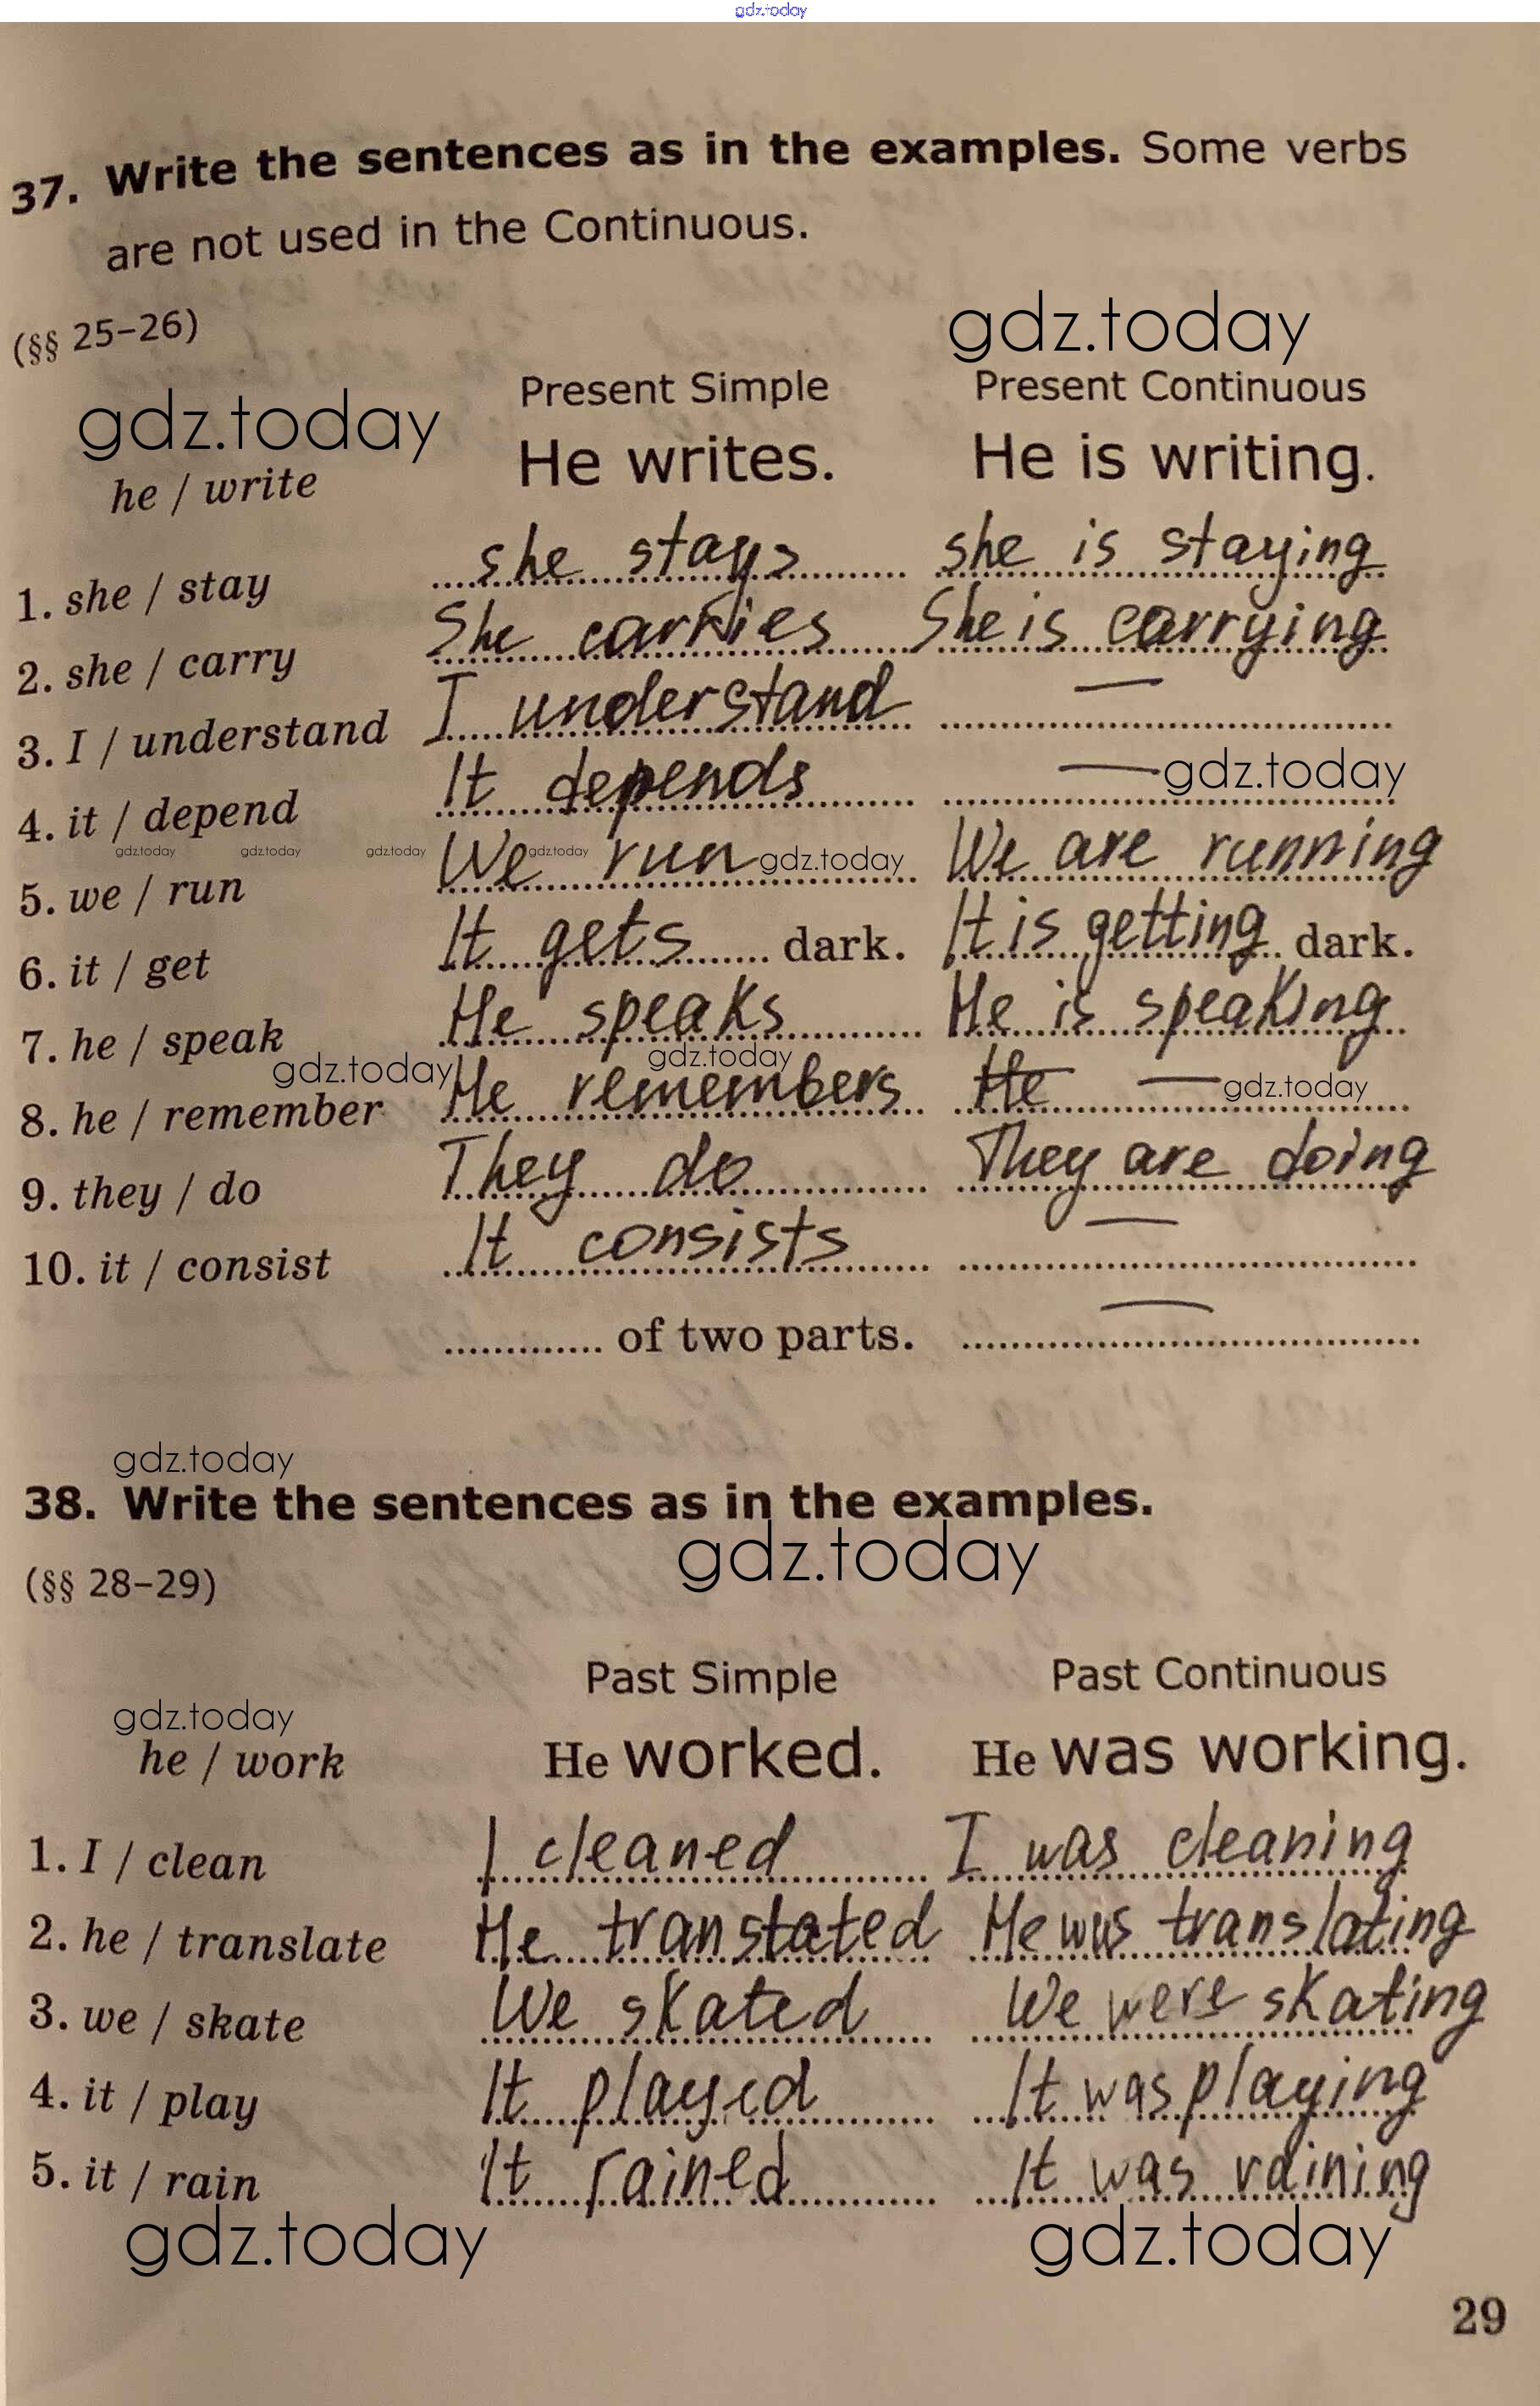 gdz.today
37. Write the sentences as in the examples. Some verbs
are not used in the Continuous.
(§§ 25–26)
gdz.today
Present Simple Present Continuous
gdz.today
he / write He writes. He is writing.
1. she / stay she stays she is staying
2. she / carry She carries She is carrying
3. I / understand I understand —
4. it / depend It depends — gdz.today
gdz.today gdz.today gdz.today gdz.today gdz.today
5. we / run We run We are running
6. it / get It gets dark. It is getting dark.
7. he / speak He speaks He is speaking
gdz.today gdz.today gdz.today
8. he / remember He remembers He —
9. they / do They do They are doing
10. it / consist It consists —
of two parts. —
gdz.today
38. Write the sentences as in the examples.
gdz.today
(§§ 28–29)
Past Simple Past Continuous
gdz.today
he / work He worked. He was working.
1. I / clean I cleaned I was cleaning
2. he / translate He translated He was translating
3. we / skate We skated We were skating
4. it / play It played It was playing
5. it / rain It rained It was raining
gdz.today gdz.today
29